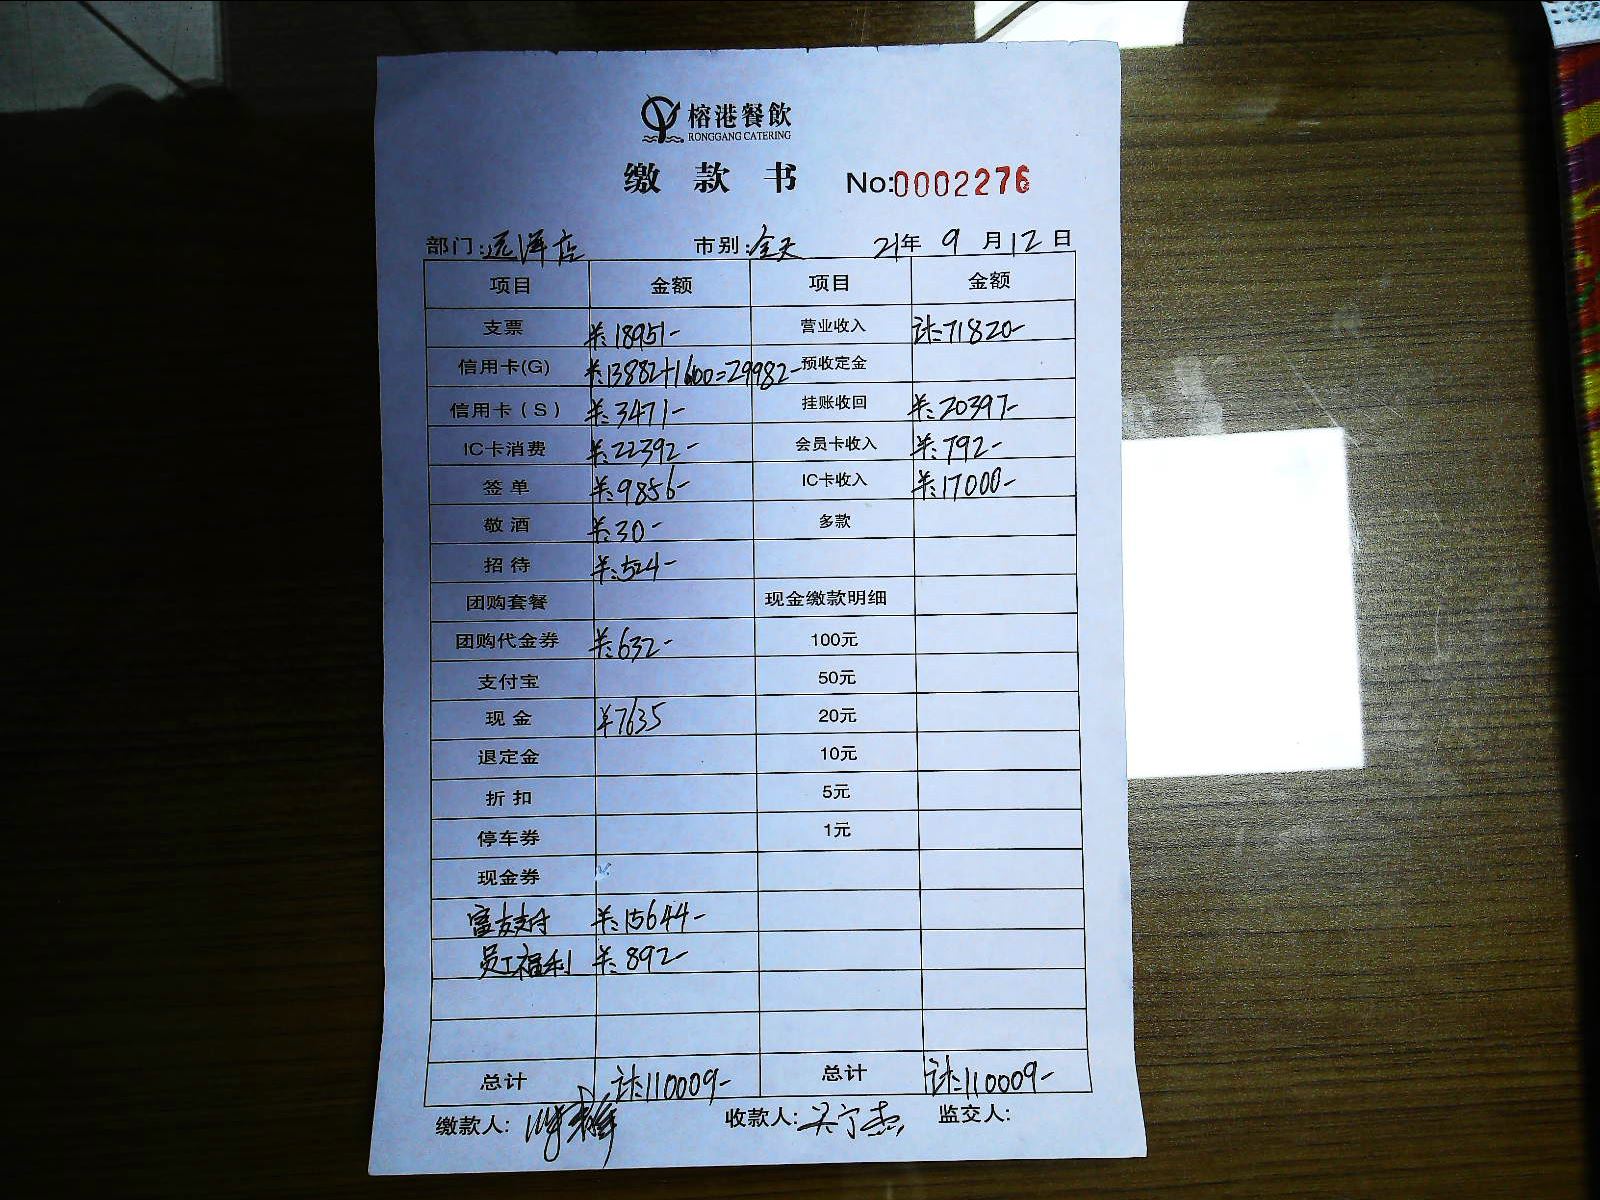 榕港餐飲
RONGGANG CATERING
缴款书 No:0002276
部门:远洋店 市别:全天 21年9月12日
项目 金额 项目 金额
支票 ¥:18951- 营业收入 计:71820-
信用卡(G) ¥:13882+1600=29982- 预收定金
信用卡(S) ¥:3471- 挂账收回 ¥:20397-
IC卡消费 ¥:22392- 会员卡收入 ¥:792-
签单 ¥:9856- IC卡收入 ¥:17000-
敬酒 ¥:30- 多款
招待 ¥:524-
团购套餐 现金缴款明细
团购代金券 ¥:632- 100元
支付宝 50元
现金 ¥7635 20元
退定金 10元
折扣 5元
停车券 1元
现金券
富友支付 ¥:15644-
员工福利 ¥:892-
总计 计:110009- 总计 计:110009-
缴款人: 收款人:吴宁杰 监交人: